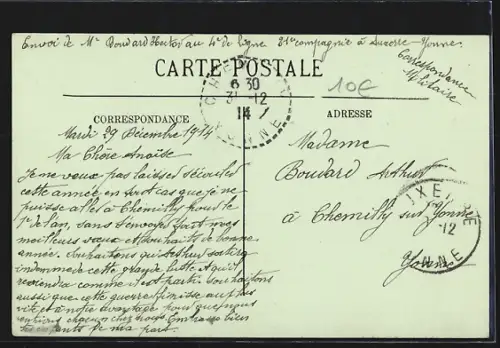 Envoi de Mr Boudard Hector au 4e de ligne 31e compagnie à Auxerre - Yonne.
Correspondance
Militaire
CARTE POSTALE
10€
6 30
31 - 12
14
YONNE
CORRESPONDANCE
ADRESSE
Mardi 29 Décembre 1914
Ma Chère Anaïse
Je ne veux pas laisser s'écouler
cette année, en tout cas que je ne
puisse aller à Chemilly pour le
1er de l'an, sans t'envoyer mes
meilleurs vœux et souhaits de bonne
année. Souhaitons qu'Arthur sortira
indemne de cette grande lutte et qu'il
reviendra comme il est parti. Souhaitons
aussi que cette guerre finisse au plus
vite et à notre avantage pour que nous
rentrions chacun chez nous. Embrasse bien
les enfants de ma part.
Madame
Boudard Arthur
à Chemilly sur Yonne
Yonne
12